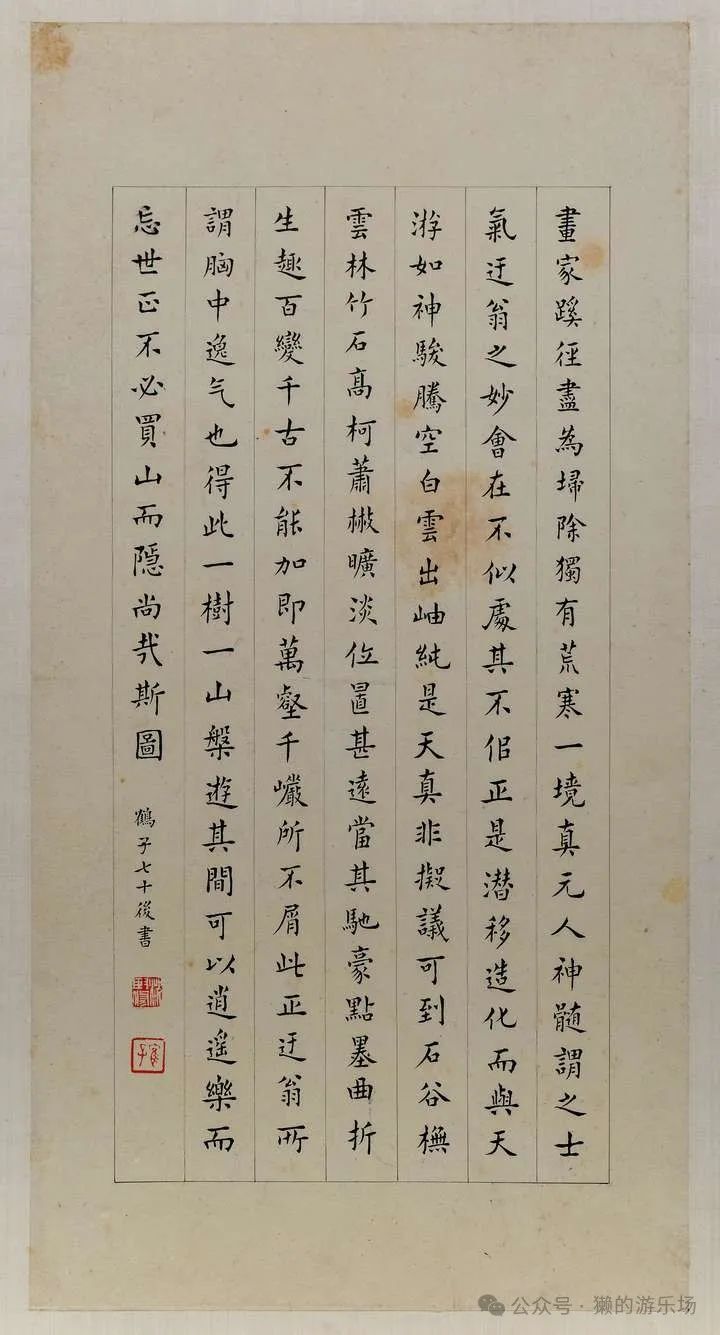 畫家蹊径盡為埽除獨有荒寒一境真元人神髓謂之士
氣迂翁之妙會在不似處其不佀正是潛移造化而與天
游如神駿騰空白雲出岫純是天真非擬議可到石谷橅
雲林竹石高柯蕭槮曠淡位置甚遠當其馳豪點墨曲折
生趣百變千古不能加即萬壑千巖所不屑此正迂翁所
謂胸中逸气也得此一樹一山槃遊其間可以逍遥樂而
忘世正不必買山而隱尚哉斯圖
鶴子七十後書
公众号·獭的游乐场